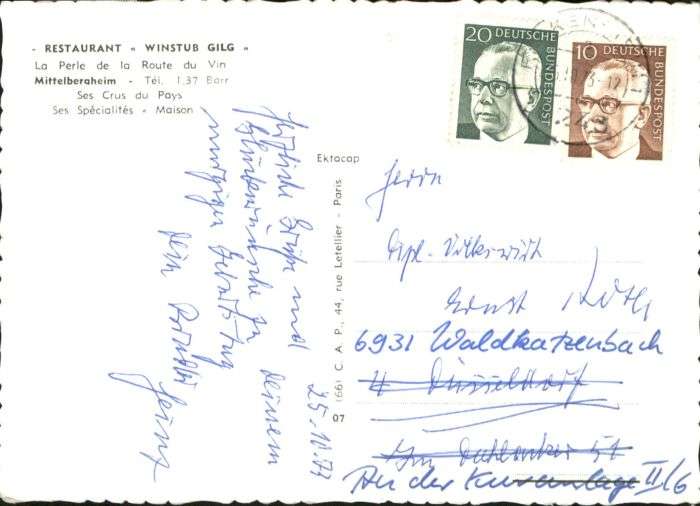 - RESTAURANT « WINSTUB GILG »
La Perle de la Route du Vin
Mittelbergheim - Tél. 1.37 Barr
Ses Crus du Pays
Ses Spécialités « Maison
20 DEUTSCHE BUNDESPOST
10 DEUTSCHE BUNDESPOST
Ektacap
(66) C. A. P., 44, rue Letellier - Paris
07
25.10.73
Herzliche Grüße und
Glückwünsche zu Deinem
Geburtstag
Dein
Heinz
Herrn
Dipl. Volkswirt
Ernst
6931 Waldkatzenbach
4 Düsseldorf
51
An der Kuranlage II/6